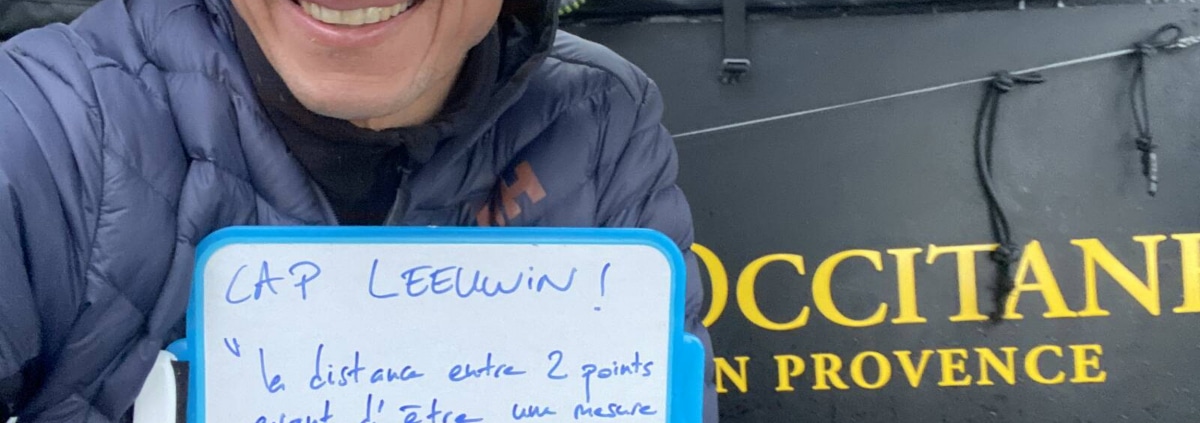 CAP LEEUWIN !
" la distance entre 2 points
avant d'être une mesure
HH
OCCITANE
N PROVENCE